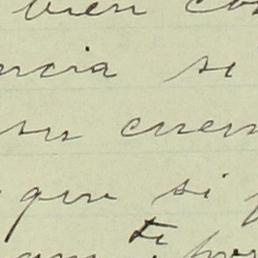 bien co
ncia si
su cuen
que si
te